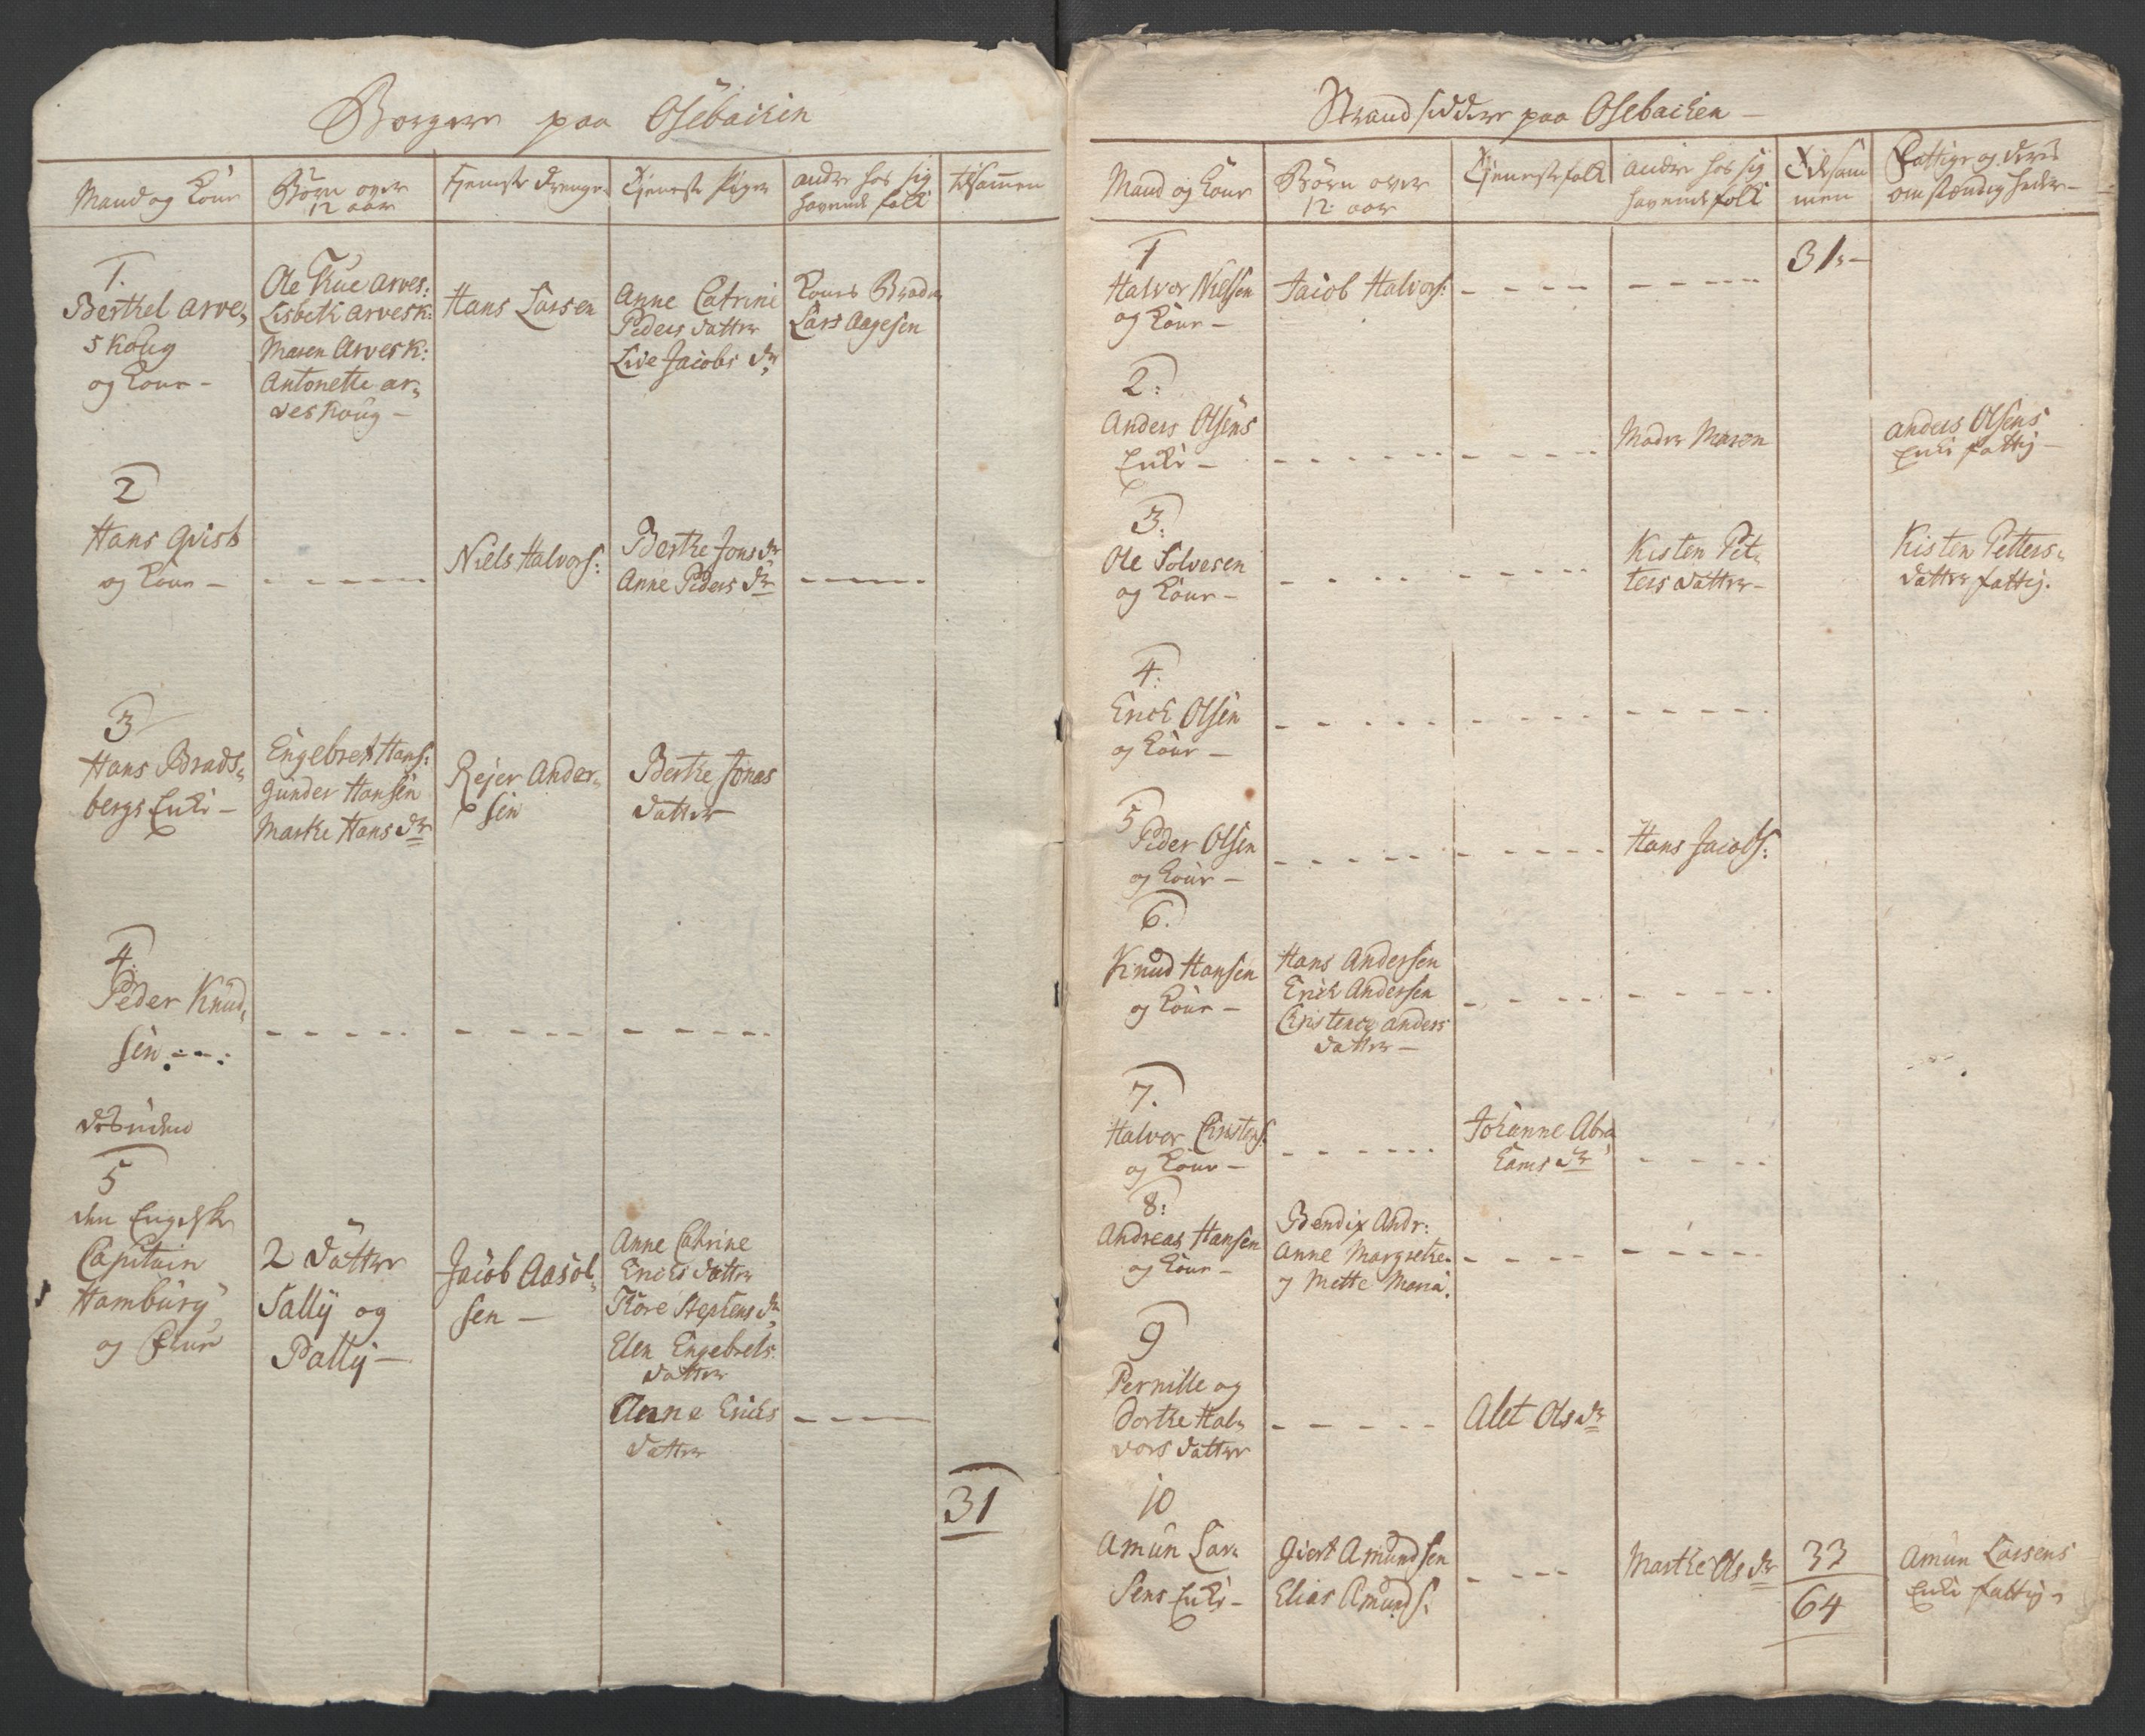 Borgere paa Osebachen
Mand og Kone
Børn over
12 aar
tjeneste drenge
Tjeneste Piger
andre hos sig
havende folk
tilsammen
1.
Berthel Arve-
skoug
og Kone -
Ole Rue Arves:
Lisbeth Arvesk:
Maren Arvesk:
Antonette ar-
veskoug -
Hans Larsen
Anne Catrine
Peders datter
Live Jacobs dr
Kones Broder
Lars Aagesen
2
Hans Qvist
og Kone -
- - - - -
Niels Halvors:
Berthe Jons dr
Anne Peders dr
- - - - -
3
Hans Brads-
bergs Enke -
Engebret Hans:
Gunder Hansen
Marthe Hans dr
Rejer Ander-
sen
Berthe Jonas
datter
4.
Peder Knud-
sen - - -
- - - - -
- - - - -
- - - - -
desuden
5
den Engelske
Capitain
Hamburg
og Frue
2 Døttre
Sally og
Polly -
Jacob Aasol-
sen -
Anne Catrine
Erichs datter
Thore Stephens dr
Elen Engebrets
datter
Anne Erichs
datter
- - - -
31
Strandsiddere paa Osebachen -
Mand og Kone
Børn over
12 aar
Tjenestefolk
andre hos sig
havende folk
Tilsam
men
Fattige og deres
omstændigheder -
1
Halvor Nielsen
og Kone -
Jacob Halvors:
- - - -
- - - - -
31 -
2:
Anders Olsens
Enke -
- - - - - -
- - - - -
Moder Maren
Anders Olsens
Enke fattig -
3:
Ole Solvesen
og Kone -
- - - - -
- - - - -
Kisten Pet-
ters datter -
Kisten Petters-
datter fattig.
4:
Erich Olsen
og Kone -
- - - - -
- - - - -
- - - - -
5
Peder Olsen
og Kone -
- - - - -
- - - - -
Hans Jacobs:
6.
Knud Hansen
og Kone -
Hans Andersen
Erich Andersen
Christence anders
datter -
- - - - -
- - - - -
7.
Halvor Christens:
og Kone -
- - - - -
Johanne Abra
hams dr
- - - -
8:
Andreas Hansen
og Kone -
Bendix Andr:
Anne Margrethe
og Mette Maria.
- - - -
- - - - -
9
Pernille og
Dorthe Hal-
vors døttre
- - - - -
Alet Ols dr
10
Amun Lar-
sens Enke -
Giert Amundsen
Elias Amunds:
- - - -
Marthe Ols dr
33
64
Amun Larsens
Enke fattig -